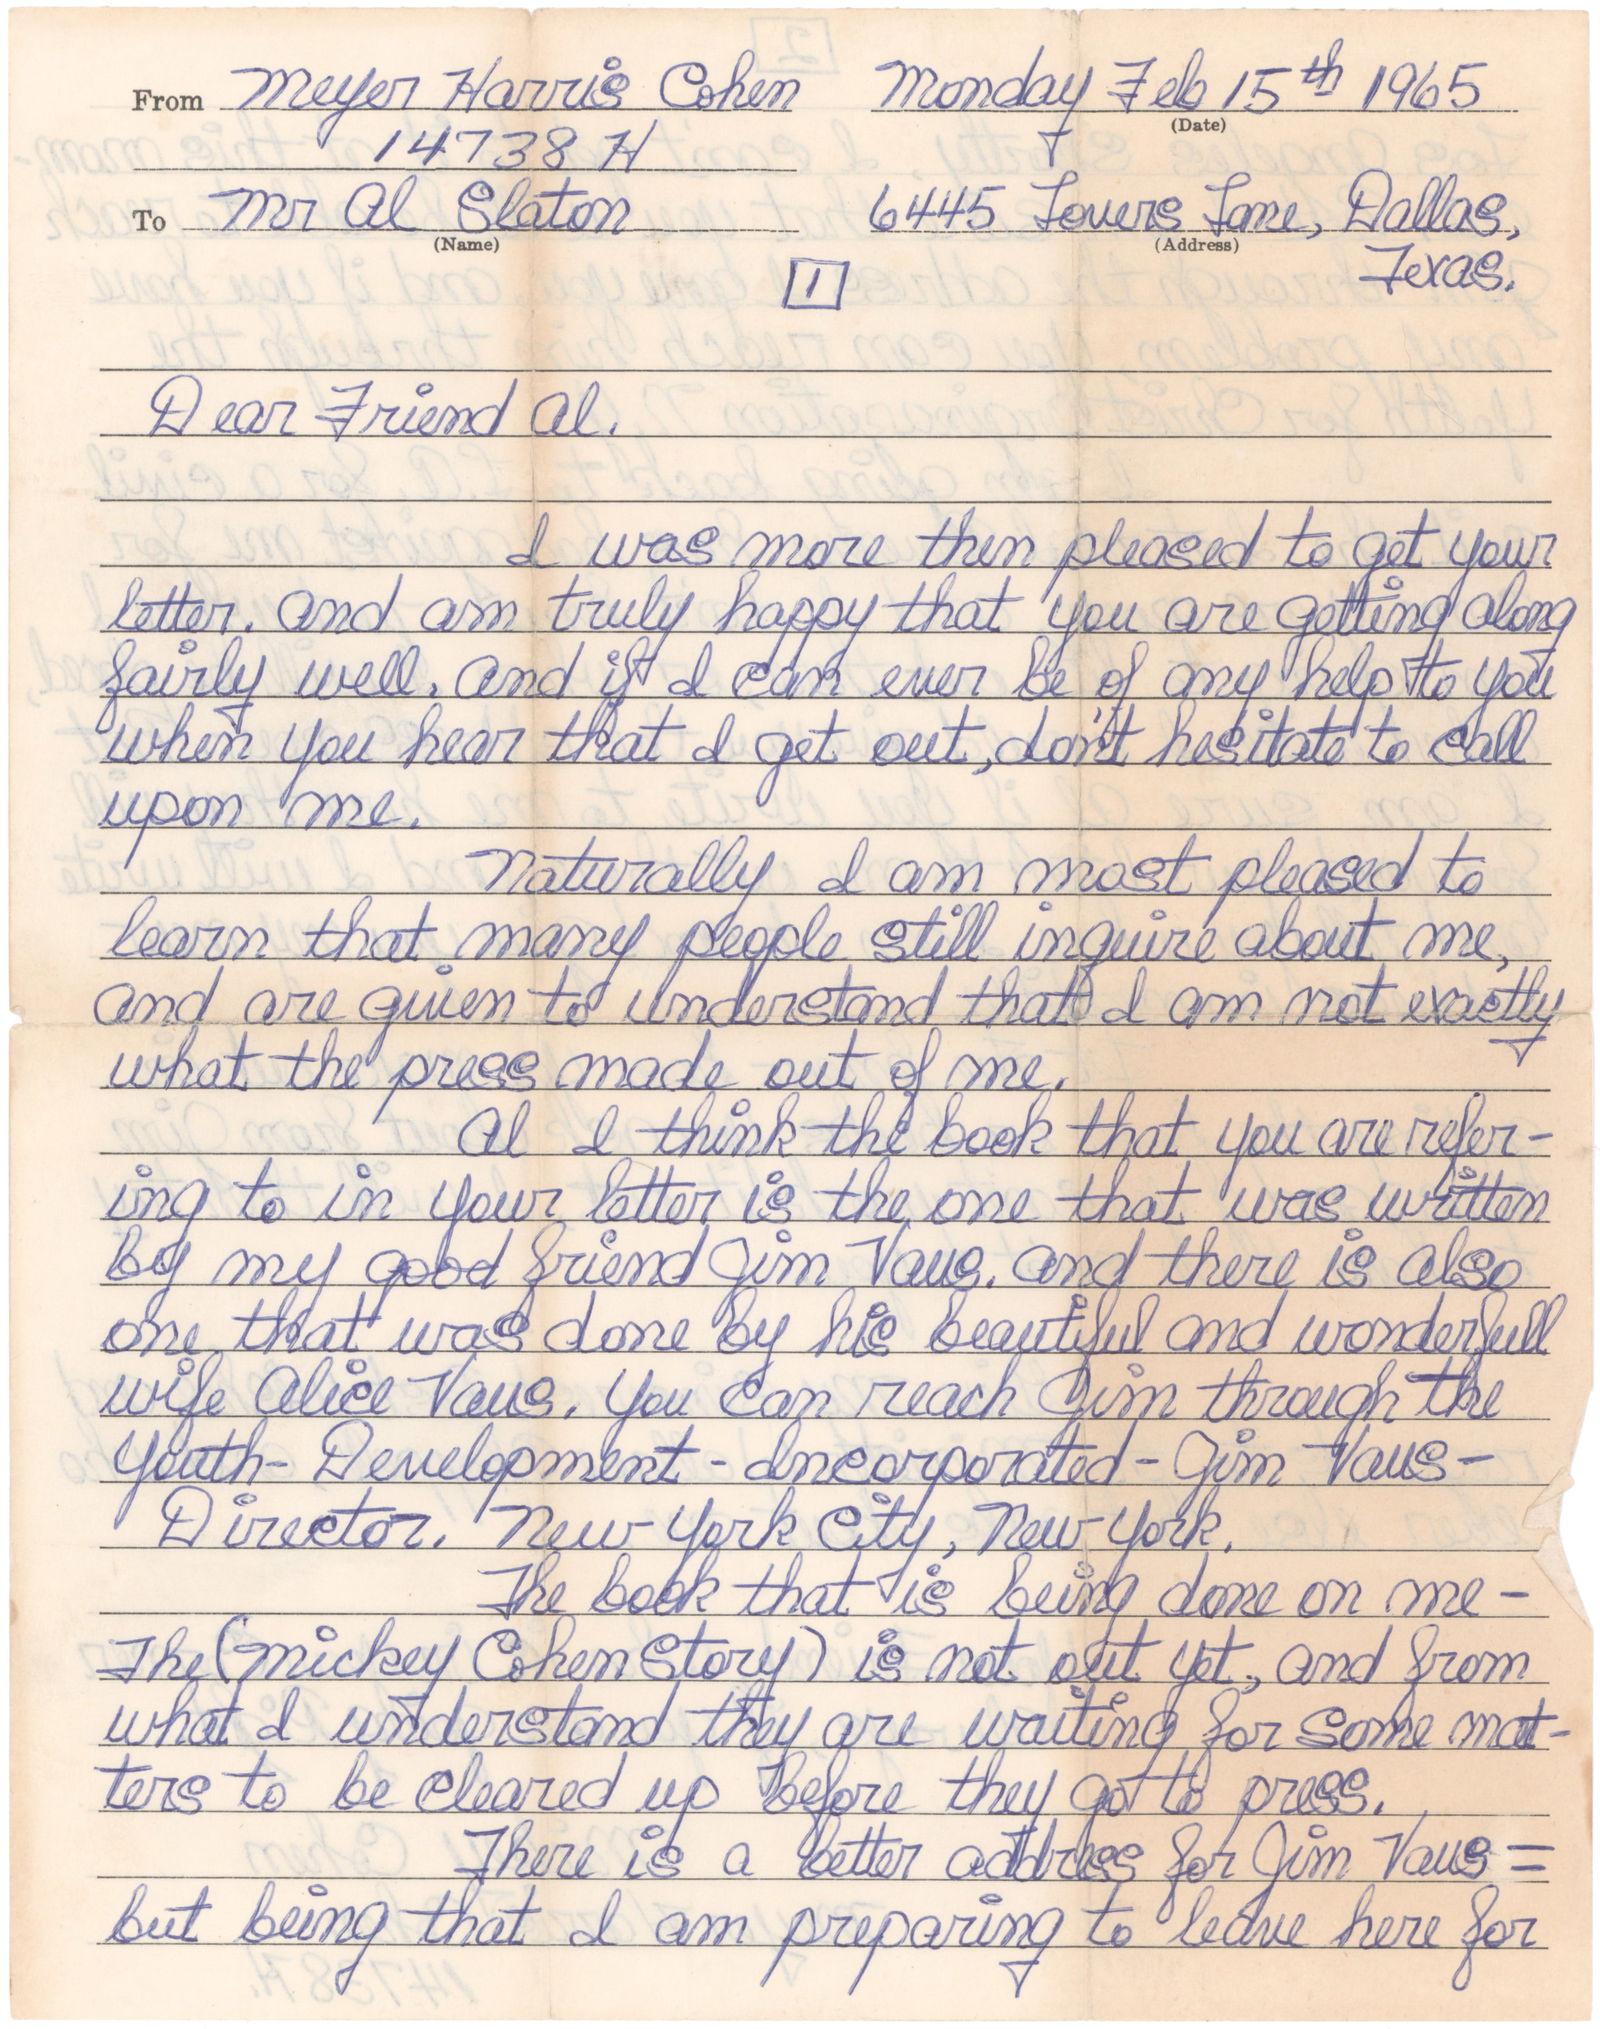 From Meyer Harris Cohen Monday Feb 15th 1965
(Date)
14738 H
To Mr Al Slaton 6445 Lovers Lane, Dallas,
(Name) (Address)
Texas.
1
Dear Friend Al.
I was more then pleased to get your
letter. And am truly happy that you are getting along
fairly well. And if I can ever be of any help to you
when you hear that I get out, don't hesitate to call
upon me.
Naturally I am most pleased to
learn that many people still inquire about me,
and are given to understand that I am not exactly
what the press made out of me.
Al I think the book that you are refer-
ing to in your letter is the one that was written
by my good friend Jim Vaus. And there is also
one that was done by his beautiful and wonderfull
wife Alice Vaus. You can reach Jim through the
Youth-Development-Incorporated-Jim Vaus-
Director. New York City, New York.
The book that is being done on me-
The (Mickey Cohen Story) is not out yet, and from
what I understand they are waiting for some mat-
ters to be cleared up before they go to press.
There is a better address for Jim Vaus =
but being that I am preparing to leave here for